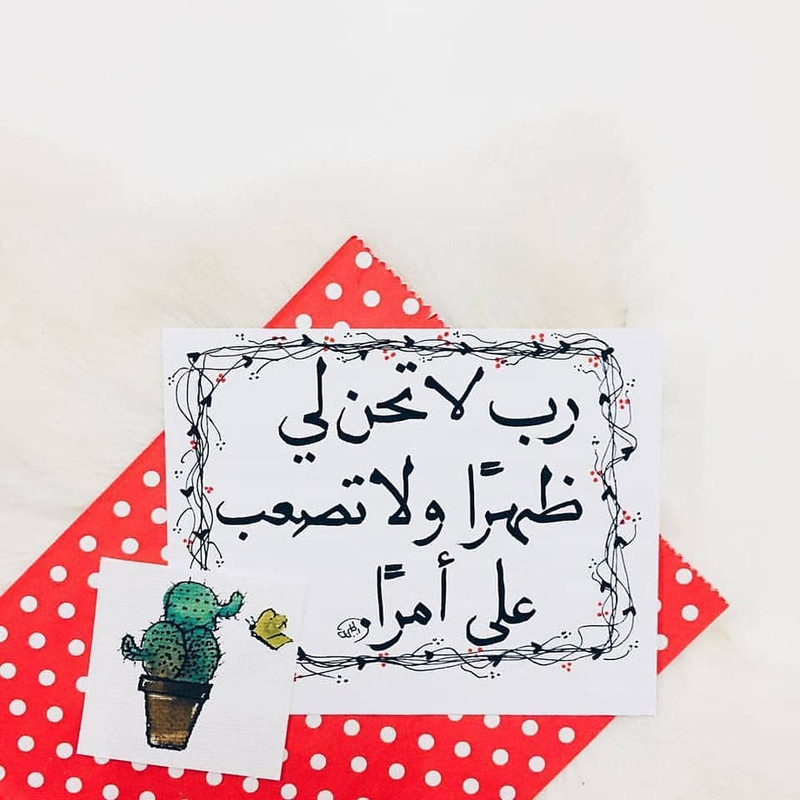 رب لا تحن لي
ظهرًا ولا تصعب
على أمرًا.